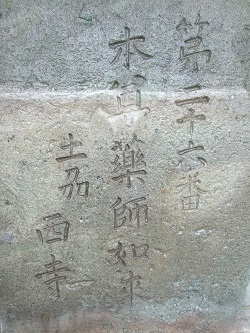 第二十六番
本尊藥師如来
土刕西寺